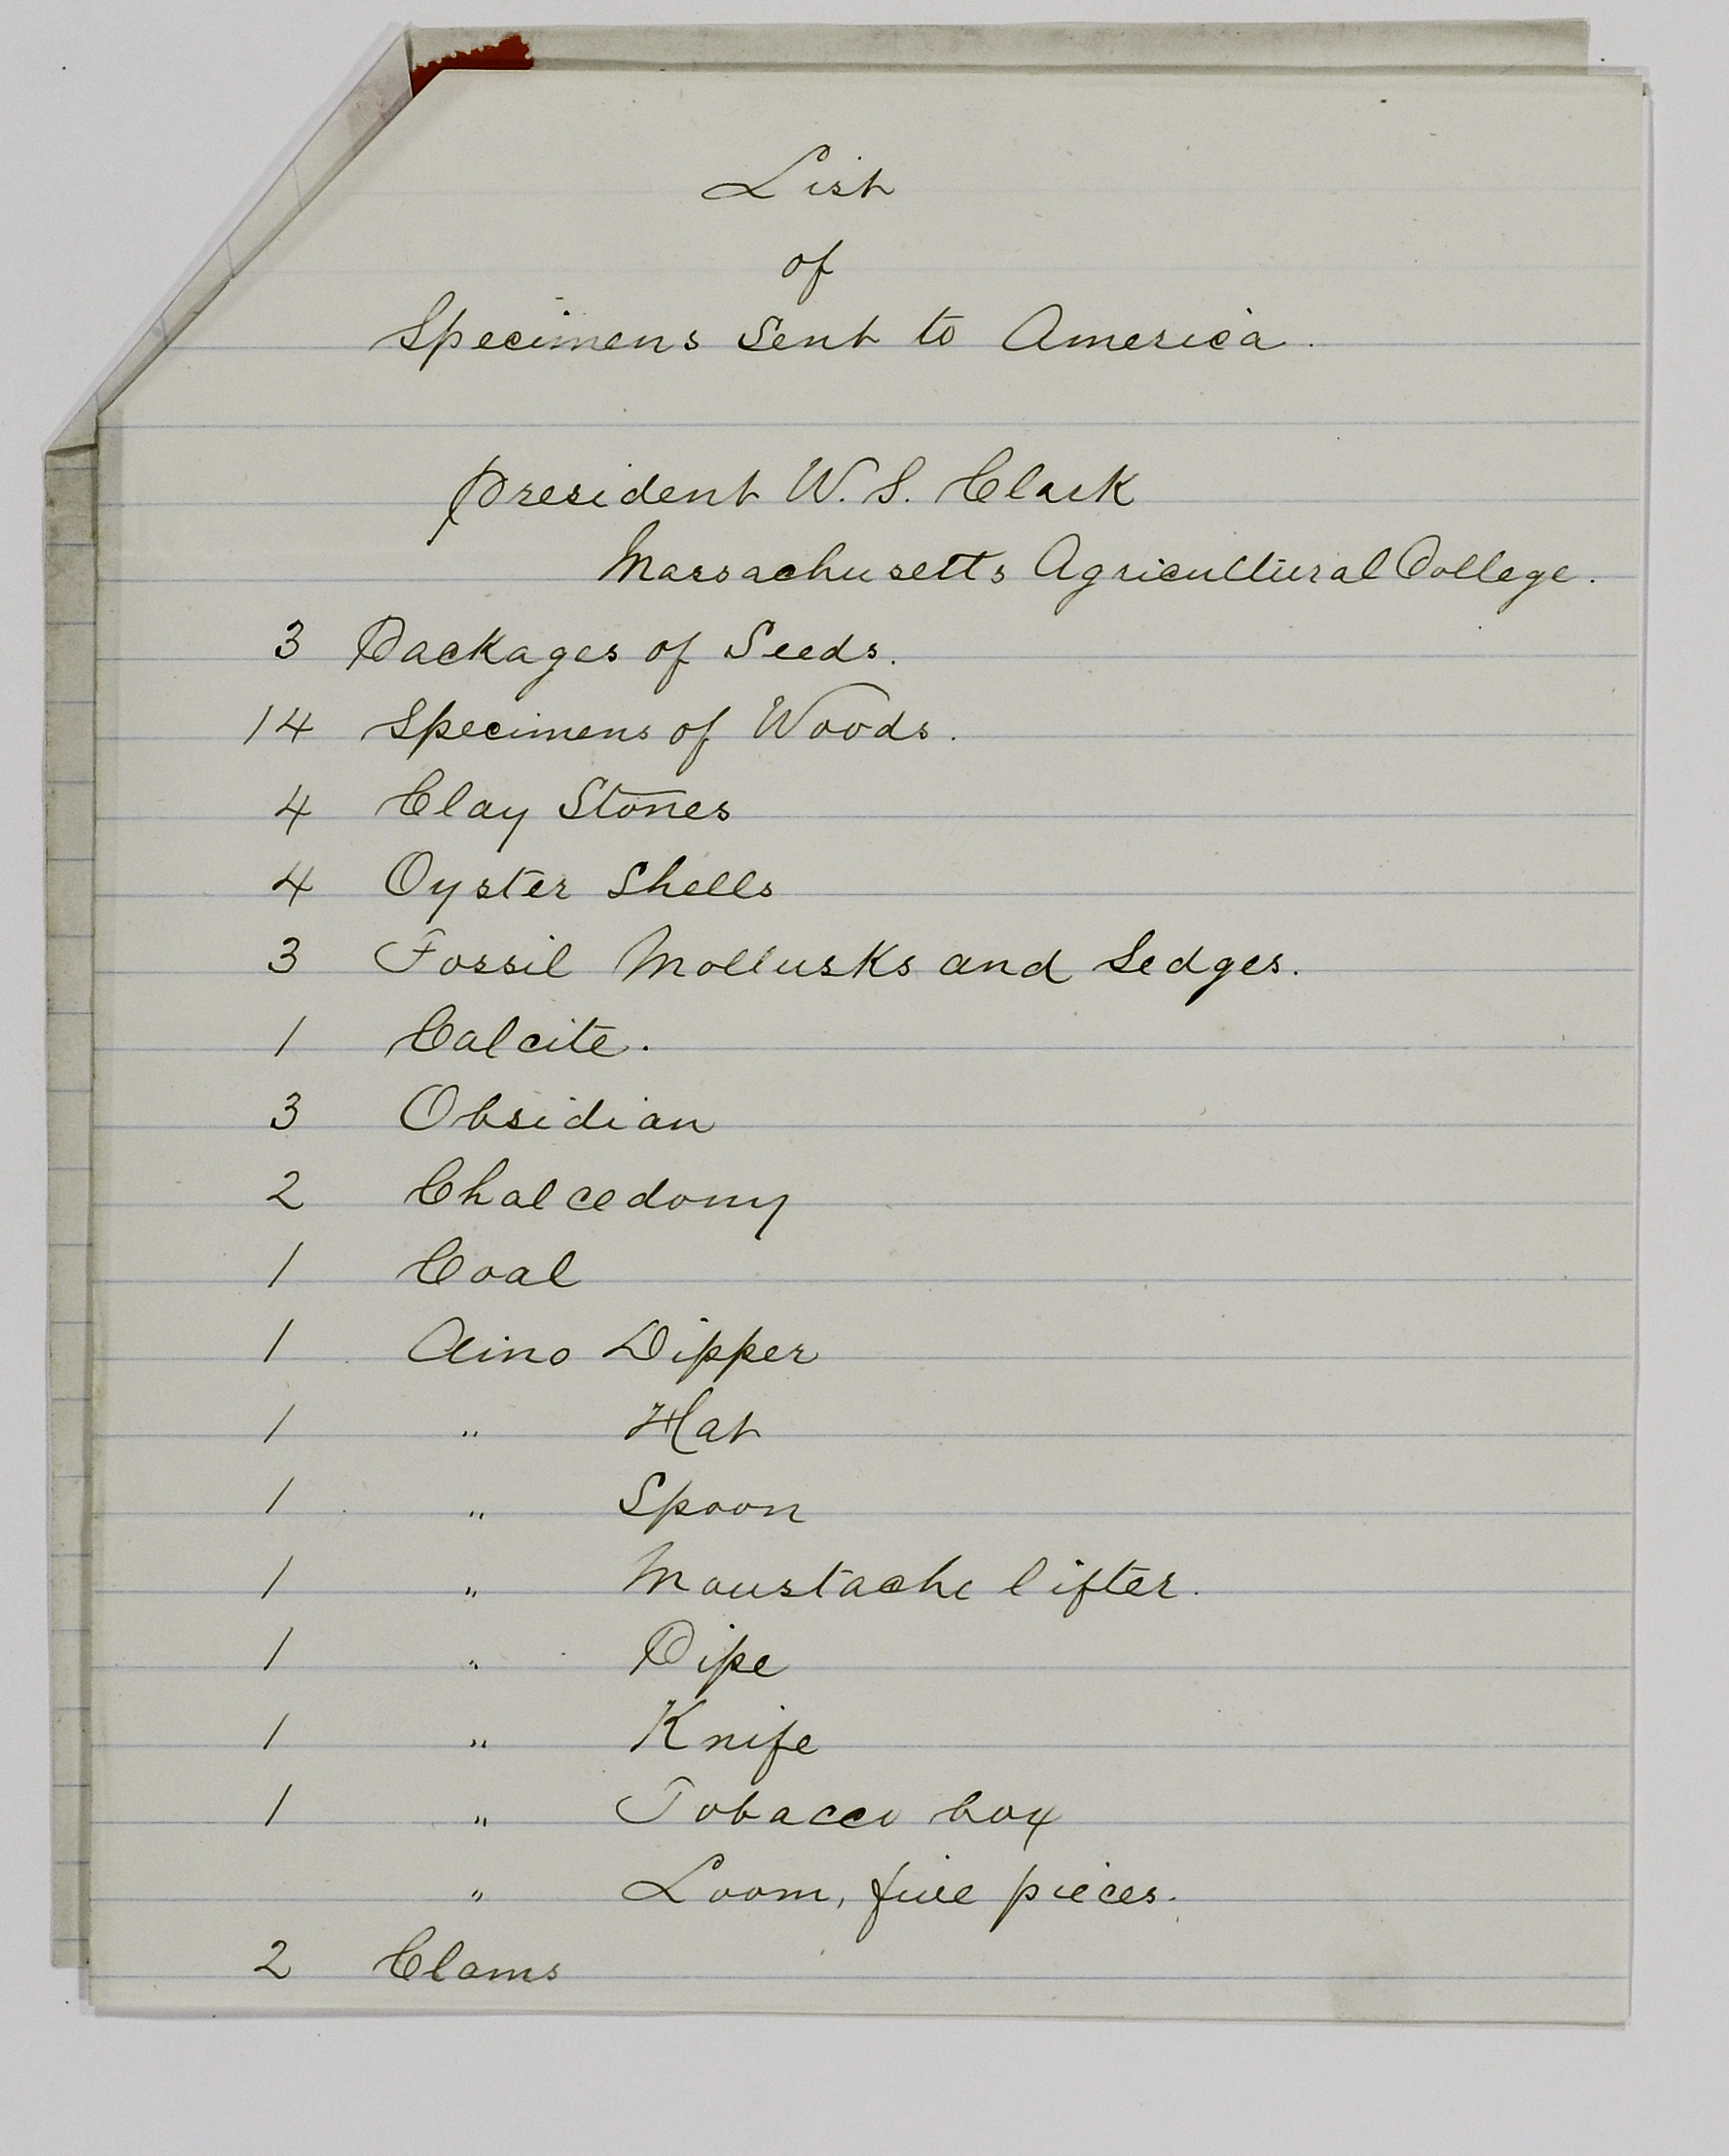 List
of
Specimens Sent to America.
President W. S. Clark
Massachusetts Agricultural College.
3 Packages of Seeds.
14 Specimens of Woods.
4 Clay Stones
4 Oyster Shells
3 Fossil Mollusks and Sedges.
1 Calcite.
3 Obsidian
2 Chalcedony
1 Coal
1 Aino Dipper
1 " Hat
1 " Spoon
1 " Moustache lifter.
1 " Pipe
1 " Knife
1 " Tobacco box
" Loom, five pieces.
2 Clams